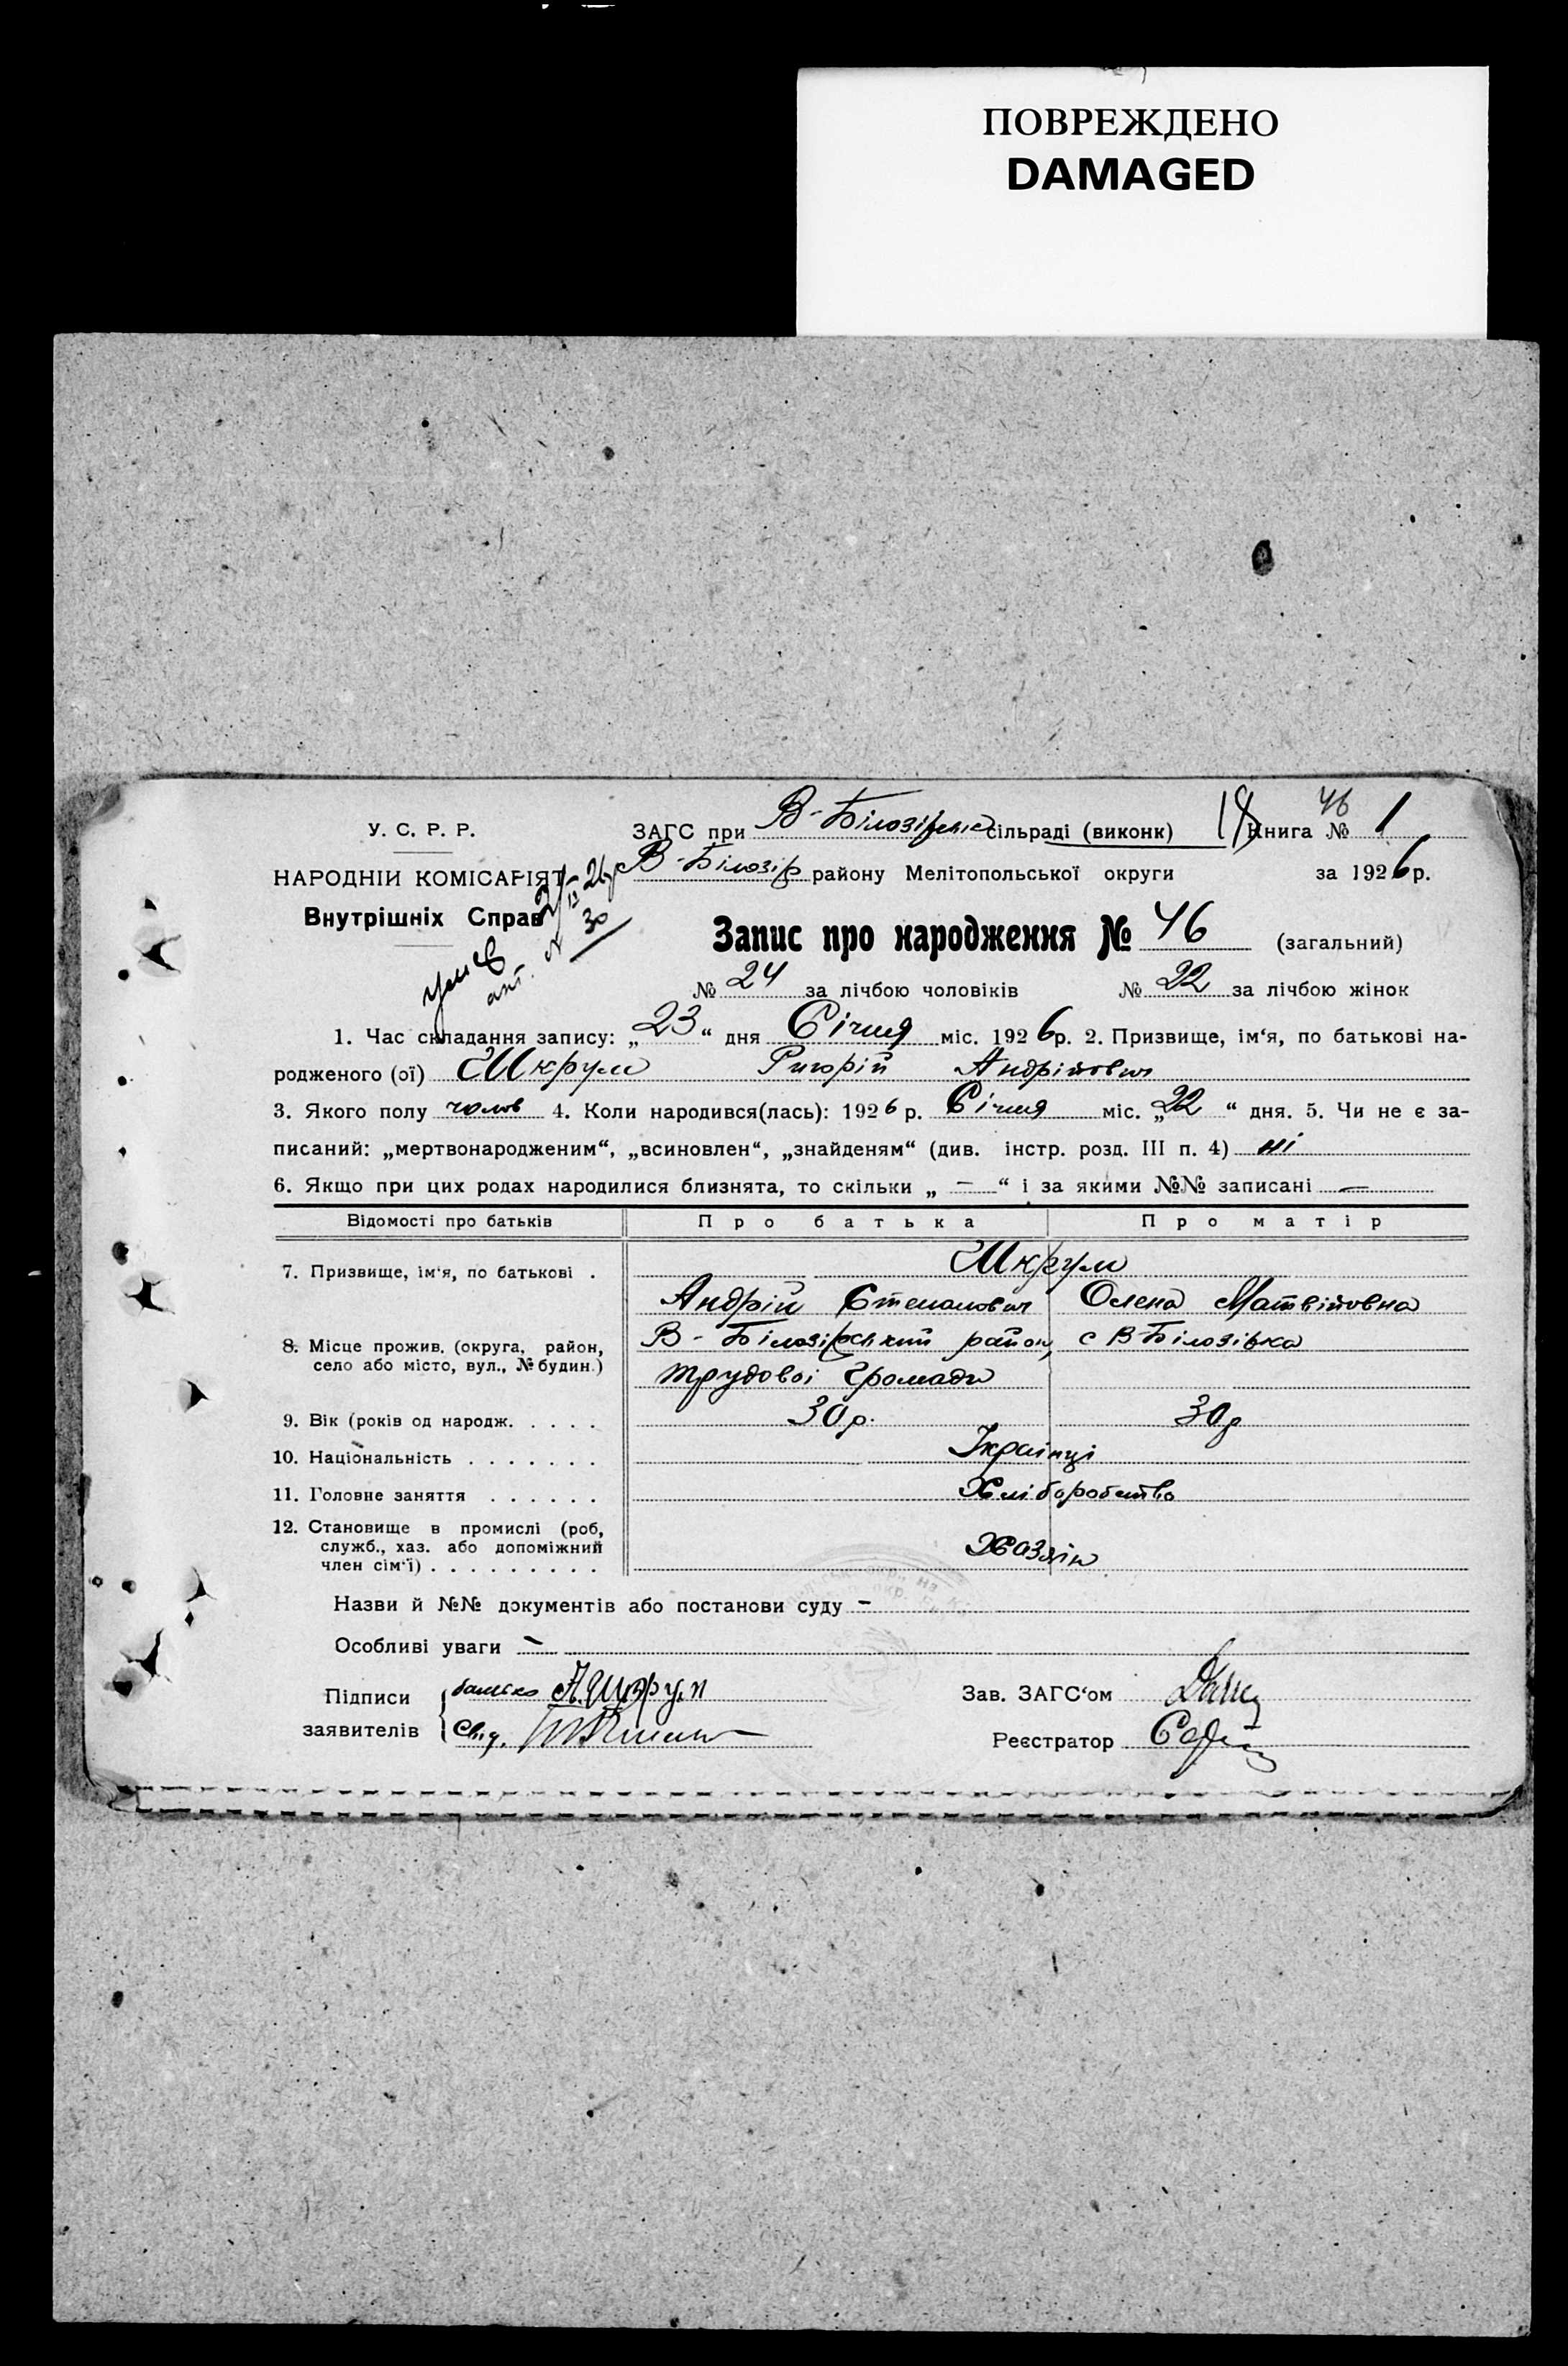 ПОВРЕЖДЕНО
DAMAGED
46
У. С. Р. Р. ЗАГС при В-Білозірське сільраді (виконк) 18 Книга № 1
НАРОДНІЙ КОМІСАРІЯТ В-Білозір району Мелітопольської округи за 1926 р.
Внутрішніх Справ
Запис про народження № 46 (загальний)
умер
акт. № 30
№ 24 за лічбою чоловіків № 22 за лічбою жінок
1. Час складання запису: „23“ дня Січня міс. 1926 р. 2. Призвище, ім‘я, по батькові на-
родженого (ої) Шкрум Григорій Андрійович
3. Якого полу чолов 4. Коли народився(лась): 1926 р. Січня міс. „22“ дня. 5. Чи не є за-
писаний: „мертвонародженим“, „всиновлен“, „знайденям“ (див. інстр. розд. III п. 4) ні
6. Якщо при цих родах народилися близнята, то скільки „ — “ і за якими №№ записані —
Відомості про батьків Про батька Про матір
7. Призвище, ім‘я, по батькові . Шкрум
Андрій Степанович Олена Матвійовна
8. Місце прожив. (округа, район, В-Білозірський район, с В-Білозівка
село або місто, вул., № будин.)
трудової громади
9. Вік (років од народж. . . . . 30 р. 30 р
10. Національність . . . . . . . Українці
11. Головне заняття . . . . . . Хліборобство
12. Становище в промислі (роб,
служб., хаз. або допоміжний Хазяін
член сім‘ї) . . . . . . . . .
Назви й №№ документів або постанови суду —
Особливі уваги —
Підписи батько А. Шкрум Зав. ЗАГС‘ом
заявителів Свід. Реєстратор